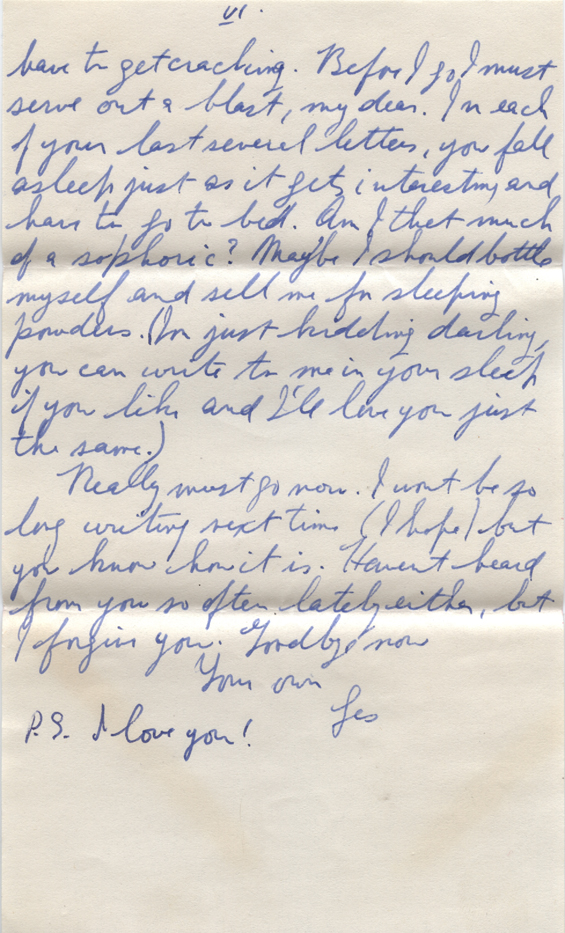 VI.
have to get cracking. Before I go I must
serve out a blast, my dear. In each
of your last several letters, you fall
asleep just as it gets interesting and
have to go to bed. Am I that much
of a sophoric? Maybe I should bottle
myself and sell me for sleeping
powders. (I'm just kidding darling,
you can write to me in your sleep
if you like and I'll love you just
the same.)
Really must go now. I wont be so
long writing next time (I hope) but
you know how it is. Havent heard
from you so often lately either, but
I forgive you. Goodbye now
Your own
Les
P.S. I love you!